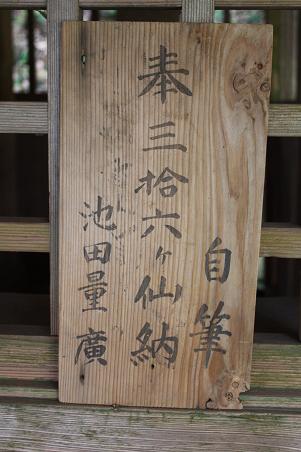 自筆
奉三拾六ヶ仙納
池田量廣